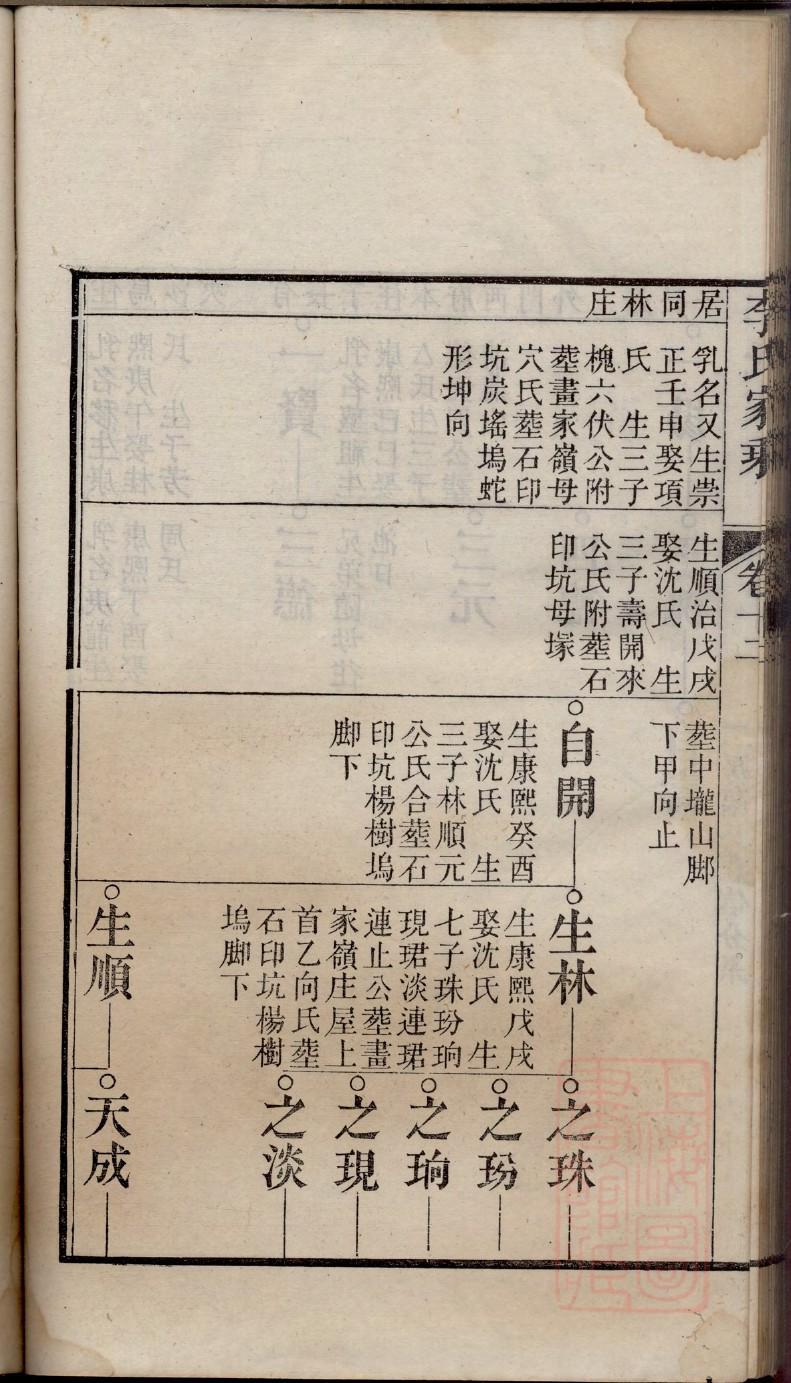 李氏家乘
卷十二
居同林庄
乳名又生崇
正壬申娶項
氏　生三子
槐六伏公附
塟畫家嶺母
穴氏塟石印
坑炭瑤塢蛇
形坤向
生順治戊戌
娶沈氏　生
三子壽開來
公氏附塟石
印坑母塚
塟中壠山脚
下甲向止
自開
生康熙癸酉
娶沈氏　生
三子林順元
公氏合塟石
印坑楊樹塢
脚下
生林
生康熙戊戌
娶沈氏　生
七子珠玢珦
現珺淡連珺
連止公塟畫
家嶺庄屋上
首乙向氏塟
石印坑楊樹
塢脚下
生順
之珠
之玢
之珦
之現
之淡
天成
上海圖書館藏